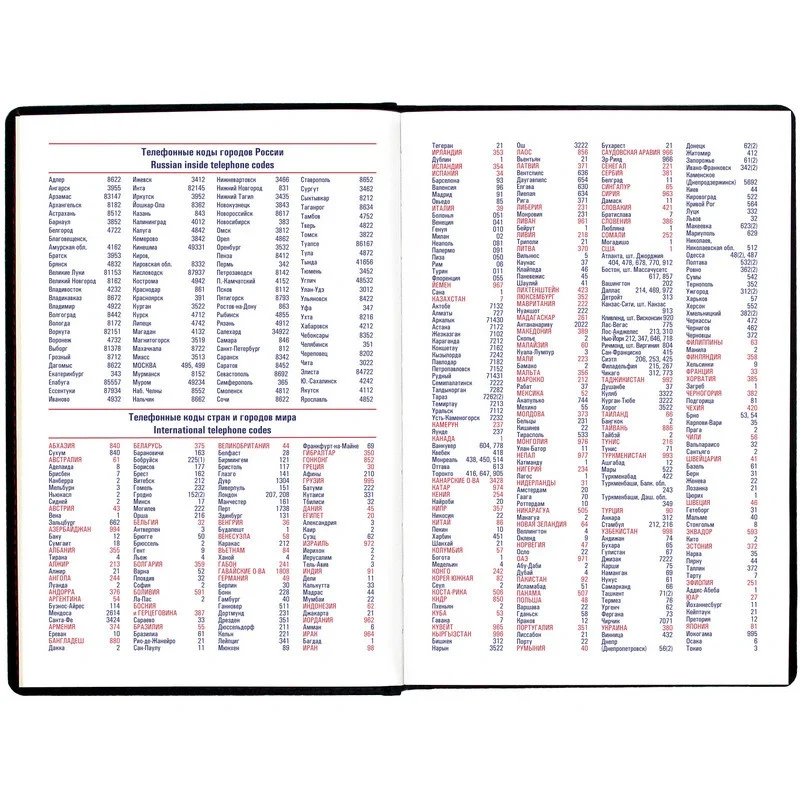 Телефонные коды городов России
Russian inside telephone codes
Адлер 8622
Ангарск 3955
Арзамас 83147
Архангельск 8182
Астрахань 8512
Барнаул 3852
Белгород 4722
Благовещенск,
Амурская обл. 4162
Братск 3953
Брянск 4832
Великие Луки 81153
Великий Новгород 8162
Владивосток 4232
Владикавказ 8672
Владимир 4922
Волгоград 8442
Вологда 8172
Воркута 82151
Воронеж 4732
Выборг 81378
Грозный 8712
Дагомыс 8622
Екатеринбург 343
Елабуга 85557
Ессентуки 87934
Иваново 4932
Ижевск 3412
Инта 82145
Иркутск 3952
Йошкар-Ола 8362
Казань 843
Калининград 4012
Калуга 4842
Кемерово 3842
Кинешма 49331
Киров,
Кировская обл. 8332
Кисловодск 87937
Кострома 4942
Краснодар 861
Красноярск 391
Курган 3522
Курск 4712
Липецк 4742
Магадан 4132
Магнитогорск 3519
Махачкала 8722
Миасс 3513
МОСКВА 495, 499
Мурманск 8152
Муром 49234
Наб. Челны 8552
Нальчик 8662
Нижневартовск 3466
Нижний Новгород 831
Нижний Тагил 3435
Новокузнецк 3843
Новороссийск 8617
Новосибирск 383
Омск 3812
Орел 4862
Оренбург 3532
Пенза 8412
Пермь 342
Петрозаводск 8142
П.-Камчатский 4152
Псков 8112
Пятигорск 8793
Ростов-на-Дону 863
Рыбинск 4855
Рязань 4912
Салехард 34922
Самара 846
Санкт-Петербург 812
Саранск 8342
Саратов 8452
Севастополь 8692
Симферополь 365
Смоленск 4812
Сочи 8622
Ставрополь 8652
Сургут 3462
Сыктывкар 8212
Таганрог 8634
Тамбов 4752
Тверь 4822
Томск 3822
Тула 4872
Туапсе 86167
Тула 4872
Тында 41656
Тюмень 3452
Углич 48532
Улан-Удэ 3012
Ульяновск 8422
Уфа 347
Ухта 8216
Хабаровск 4212
Чебоксары 8352
Челябинск 351
Череповец 8202
Чита 3022
Элиста 84722
Ю. Сахалинск 4242
Якутск 4112
Ярославль 4852
Телефонные коды стран и городов мира
International telephone codes
АБХАЗИЯ 840
Сухум 840
АВСТРАЛИЯ 61
Аделаида 8
Брисбен 7
Канберра 2
Мельбурн 3
Ньюкасл 2
Сидней 2
АВСТРИЯ 43
Вена 1
Зальцбург 662
АЗЕРБАЙДЖАН 994
Баку 12
Сумгаит 18
АЛБАНИЯ 355
Тирана 4
АЛЖИР 213
Алжир 21
АНГОЛА 244
Луанда 2
АНДОРРА 376
АРГЕНТИНА 54
Буэнос-Айрес 114
Мендоса 2614
Санта-Фе 3424
АРМЕНИЯ 374
Ереван 10
БАНГЛАДЕШ 880
Дакка 2
БЕЛАРУСЬ 375
Барановичи 163
Бобруйск 225(1)
Борисов 177
Брест 162
Витебск 212
Гомель 232
Гродно 152(2)
Минск 17
Могилев 222
Орша 216
БЕЛЬГИЯ 32
Антверпен 3
Брюгге 50
Брюссель 2
Гент 9
Льеж 4
БОЛГАРИЯ 359
Варна 52
Пловдив 32
София 2
БОЛИВИЯ 591
Ла-Пас 2
БОСНИЯ
и ГЕРЦЕГОВИНА 387
Сараево 33
БРАЗИЛИЯ 55
Бразилиа 61
Рио-де-Жанейро 21
Сан-Паулу 11
ВЕЛИКОБРИТАНИЯ 44
Белфаст 28
Бирмингем 121
Бристоль 117
Глазго 141
Дувр 1304
Ливерпуль 151
Лондон 207, 208
Манчестер 161
Перт 1738
Эдинбург 131
ВЕНГРИЯ 36
Будапешт 1
ВЕНЕСУЭЛА 58
Каракас 212
ВЬЕТНАМ 84
Ханой 4
ГАБОН 241
ГАВАЙСКИЕ О-ВА 1808
ГЕРМАНИЯ 49
Берлин 30
Бонн 228
Гамбург 40
Ганновер 511
Дортмунд 231
Дрезден 351
Дюссельдорф 211
Кельн 221
Лейпциг 341
Мюнхен 89
Франкфурт-на-Майне 69
ГИБРАЛТАР 350
ГОНКОНГ 852
ГРЕЦИЯ 30
Афины 210
ГРУЗИЯ 995
Батуми 222
Кутаиси 331
Тбилиси 32
ДАНИЯ 45
ЕГИПЕТ 20
Александрия 3
Каир 2
Суэц 62
ИЗРАИЛЬ 972
Иерихон 2
Иерусалим 2
Тель-Авив 3
ИНДИЯ 91
Дели 11
Калькутта 33
Мадрас 44
Мумбаи 22
ИНДОНЕЗИЯ 62
Джакарта 21
ИОРДАНИЯ 962
Амман 6
ИРАК 964
Багдад 1
ИРАН 98
Тегеран 21
ИРЛАНДИЯ 353
Дублин 1
ИСЛАНДИЯ 354
ИСПАНИЯ 34
Барселона 93
Валенсия 96
Мадрид 91
Овьедо 85
ИТАЛИЯ 39
Болонья 051
Венеция 041
Генуя 010
Милан 02
Неаполь 081
Палермо 091
Пиза 050
Рим 06
Турин 011
Флоренция 055
ЙЕМЕН 967
Сана 1
КАЗАХСТАН 7
Актобе 7132
Алматы 727
Аркалык 71430
Астана 7172
Жезказган 7102
Караганда 7212
Кокшетау 7162
Кызылорда 7242
Павлодар 7182
Петропавловск 7152
Рудный 71431
Семипалатинск 7222
Талдыкорган 7282
Тараз 7262(2)
Темиртау 7213
Уральск 7112
Усть-Каменогорск 7232
КАМЕРУН 237
Яунде 237
КАНАДА 1
Ванкувер 604, 778
Квебек 418
Монреаль 438, 450, 514
Оттава 613
Торонто 416, 647, 905
КАНАРСКИЕ О-ВА 3428
КАТАР 974
КЕНИЯ 254
Найроби 20
КИПР 357
Никосия 22
КИТАЙ 86
Пекин 10
Харбин 451
Шанхай 21
КОЛУМБИЯ 57
Богота 1
Медельин 4
КОНГО 242
КОРЕЯ ЮЖНАЯ 82
Сеул 2
КОСТА-РИКА 506
КНДР 850
Пхеньян 2
КУБА 53
Гавана 7
КУВЕЙТ 965
КЫРГЫЗСТАН 996
Бишкек 312
Нарын 3522
Ош 3222
ЛАОС 856
Вьентьян 21
ЛАТВИЯ 371
Вентспилс 636
Даугавпилс 654
Елгава 630
Лиепая 634
Рига 371
ЛИБЕРИЯ 231
Монровия 231
ЛИВАН 961
Бейрут 1
ЛИВИЯ 218
Триполи 21
ЛИТВА 370
Вильнюс 5
Каунас 37
Клайпеда 46
Паневежис 45
Шяуляй 41
ЛИХТЕНШТЕЙН 423
ЛЮКСЕМБУРГ 352
МАВРИТАНИЯ 222
Нуакшот 222
МАДАГАСКАР 261
Антананариву 2022
МАКЕДОНИЯ 389
Скопье 2
МАЛАЙЗИЯ 60
Куала-Лумпур 3
МАЛИ 223
Бамако 2
МАЛЬТА 356
МАРОККО 212
Рабат 37
МЕКСИКА 52
Акапулько 744
Мехико 55
МОЛДОВА 373
Бельцы 231
Кишинев 22
Тирасполь 533
МОНГОЛИЯ 976
Улан-Батор 11
НЕПАЛ 977
Катманду 1
НИГЕРИЯ 234
Лагос 1
НИДЕРЛАНДЫ 31
Амстердам 20
Гаага 70
Роттердам 10
НИКАРАГУА 505
Манагуа 2
НОВАЯ ЗЕЛАНДИЯ 64
Веллингтон 4
Окленд 9
НОРВЕГИЯ 47
Осло 22
ОАЭ 971
Абу-Даби 2
Дубай 4
ПАКИСТАН 92
Исламабад 51
ПАНАМА 507
ПОЛЬША 48
Варшава 22
Гданьск 58
Краков 12
ПОРТУГАЛИЯ 351
Лиссабон 21
Порту 22
РУМЫНИЯ 40
Бухарест 21
САУДОВСКАЯ АРАВИЯ 966
Эр-Рияд 966
СЕНЕГАЛ 221
СЕРБИЯ 381
Белград 11
СИНГАПУР 65
СИРИЯ 963
Дамаск 11
СЛОВАКИЯ 421
Братислава 7
СЛОВЕНИЯ 386
Любляна 1
СОМАЛИ 252
Могадишо 1
США 1
Атланта, шт. Джорджия
404, 478, 678, 770, 912
Бостон, шт. Массачусетс
617, 857
Вашингтон 202
Даллас 214, 469, 972
Детройт 313
Канзас-Сити, шт. Канзас
913
Кливленд, шт. Висконсин 920
Лас-Вегас 775
Лос-Анджелес 213, 310
Нью-Йорк 212, 347, 646, 718
Ричмонд, шт. Виргиния 804
Сан-Франциско 415
Сиэтл 206, 253, 425
Филадельфия 215, 267
Чикаго 312, 773
ТАДЖИКИСТАН 992
Душанбе 37
Куляб 3322
Курган-Тюбе 3222
Хорог 3522
ТАИЛАНД 66
Бангкок 2
ТАЙВАНЬ 886
Тайбэй 2
ТУНИС 216
Тунис 71
ТУРКМЕНИСТАН 993
Ашгабад 12
Мары 522
Туркменабад 422
Туркменбаши, Балк. обл.
243
Туркменбаши, Даш. обл.
ТУРЦИЯ 90
Анкара 312
Стамбул 212, 216
УЗБЕКИСТАН 998
Андижан 74
Бухара 65
Гулистан 67
Джизак 72
Карши 75
Наманган 69
Нукус 61
Самарканд 66
Ташкент 71(2)
Термез 76
Ургенч 62
Фергана 73
Чирчик 7071
УКРАИНА 380
Винница 432
Днепр
(Днепропетровск) 56(2)
Донецк 62(2)
Житомир 412
Запорожье 61(2)
Ивано-Франковск 342(2)
Каменское
(Днепродзержинск) 5692
Киев 44
Кировоград 522
Кривой Рог 564
Луцк 332
Львов 32
Макеевка 623(2)
Мариуполь 629
Николаев,
Николаевская обл. 512
Одесса 48(2), 487
Полтава 532(2)
Ровно 362(2)
Сумы 542
Тернополь 352
Ужгород 312(2)
Харьков 57
Херсон 552
Хмельницкий 382(2)
Черкассы 472
Чернигов 462
Черновцы 372
ФИЛИППИНЫ 63
Манила 2
ФИНЛЯНДИЯ 358
Хельсинки 9
ФРАНЦИЯ 33
ХОРВАТИЯ 385
Загреб 1
ЧЕРНОГОРИЯ 382
Подгорица 81
ЧЕХИЯ 420
Брно 53, 54
Карловы-Вари 35
Прага 2
ЧИЛИ 56
Вальпараисо 32
Сантьяго 2
ШВЕЙЦАРИЯ 41
Базель 61
Берн 31
Женева 22
Лозанна 21
Цюрих 1
ШВЕЦИЯ 46
Гетеборг 31
Мальме 40
Стокгольм 8
ЭКВАДОР 593
Кито 2
ЭСТОНИЯ 372
Нарва 35
Пярну 44
Таллин 372
Тарту 7
ЭФИОПИЯ 251
Аддис-Абеба 1
ЮАР 27
Йоханнесбург 11
Кейптаун 21
Претория 12
ЯПОНИЯ 81
Иокогама 995
Осака 6
Токио 3